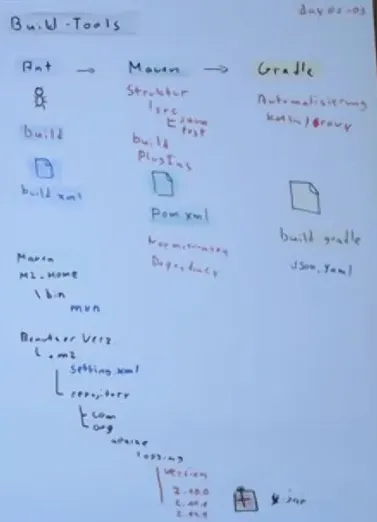 day 02-03
Build-Tools
Ant → Maven → Gradle
Struktur
src
java
test
Automatisierung
Kotlin/Groovy
build
build
PlugIns
build xml
pom xml
build gradle
Dependency
Json, Yaml
Maven
M2_Home
\ bin
mvn
Benutzer Verz.
.m2
setting.xml
repository
com
org
apache
logging
version
2.10.0